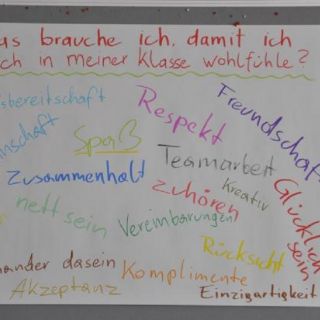 as brauche ich, damit ich
ch in meiner Klasse wohlfühle?
sbereitschaft
Respekt
Freundschaft
nschaft
Spaß
Teamarbeit
Zusammenhalt
zuhören
Kreativ
Glücklich
sein
nett sein
Vereinbarungen
Rücksicht
nander dasein
Komplimente
Akzeptanz
Einzigartigkeit